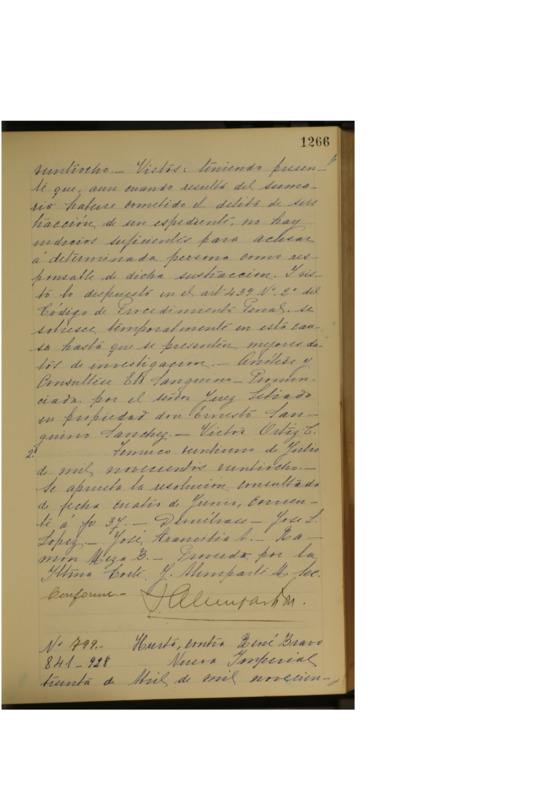 1266
veintiocho.- Vistos: teniendo presen-
te que, aun cuando resulta del suma-
rio haberse cometido el delito de sus
tracción de un espediente, no hay
indicios suficientes para acusar
á determinada persona como res-
ponsable de dicha sustraccion. I vis-
to lo dispuesto en el art 439 Nº 2º del
Código de Procedimiento Penal, se
sobresee temporalmente en esta cau-
sa hasta que se presenten mejores da-
tos de investigacion.- Anótese y
Consúltese Eto Sanguino- Pronun-
ciada por el señor Juez Letrado
en propiedad don Ernesto San-
guino Sanchez.- Victor Ortiz C.
2ª Temuco veintiuno de Julio
de mil novecientos veintiocho.-
Se aprueba la resolución consultada
de fecha cuatro de Junio, corrien-
te á fs 37.- Devuélvase- Jose L.
Lopez.- José Arancibia A.- Ra-
mon Meza B.- Proveido por la
Iltma Corte. J. Almonparte M. Sec.
Conforme-
Nº 799.- Hurto, contra René Bravo
841-928 Nueva Imperial
treinta de Abril de mil novecien-